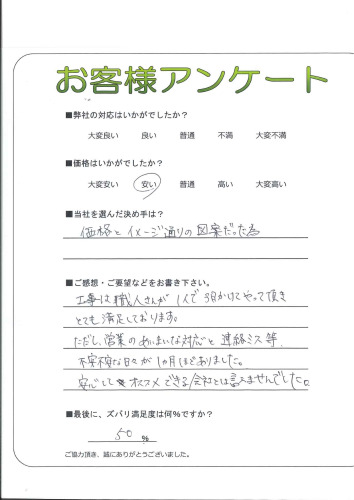 お客様アンケート
■弊社の対応はいかがでしたか？
大変良い　良い　普通　不満　大変不満
■価格はいかがでしたか？
大変安い　安い　普通　高い　大変高い
■当社を選んだ決め手は？
価格とイメージ通りの図案だった為
■ご感想・ご要望などをお書き下さい。
工事は職人さんが1人で3日かけてやって頂き
とても満足しております。
ただし、営業のあいまいな対応と連絡ミス等
不安な日々が1ヵ月ほどありました。
安心してオススメできる会社とは言えませんでした。
■最後に、ズバリ満足度は何%ですか？
50 %
ご協力頂き、誠にありがとうございました。